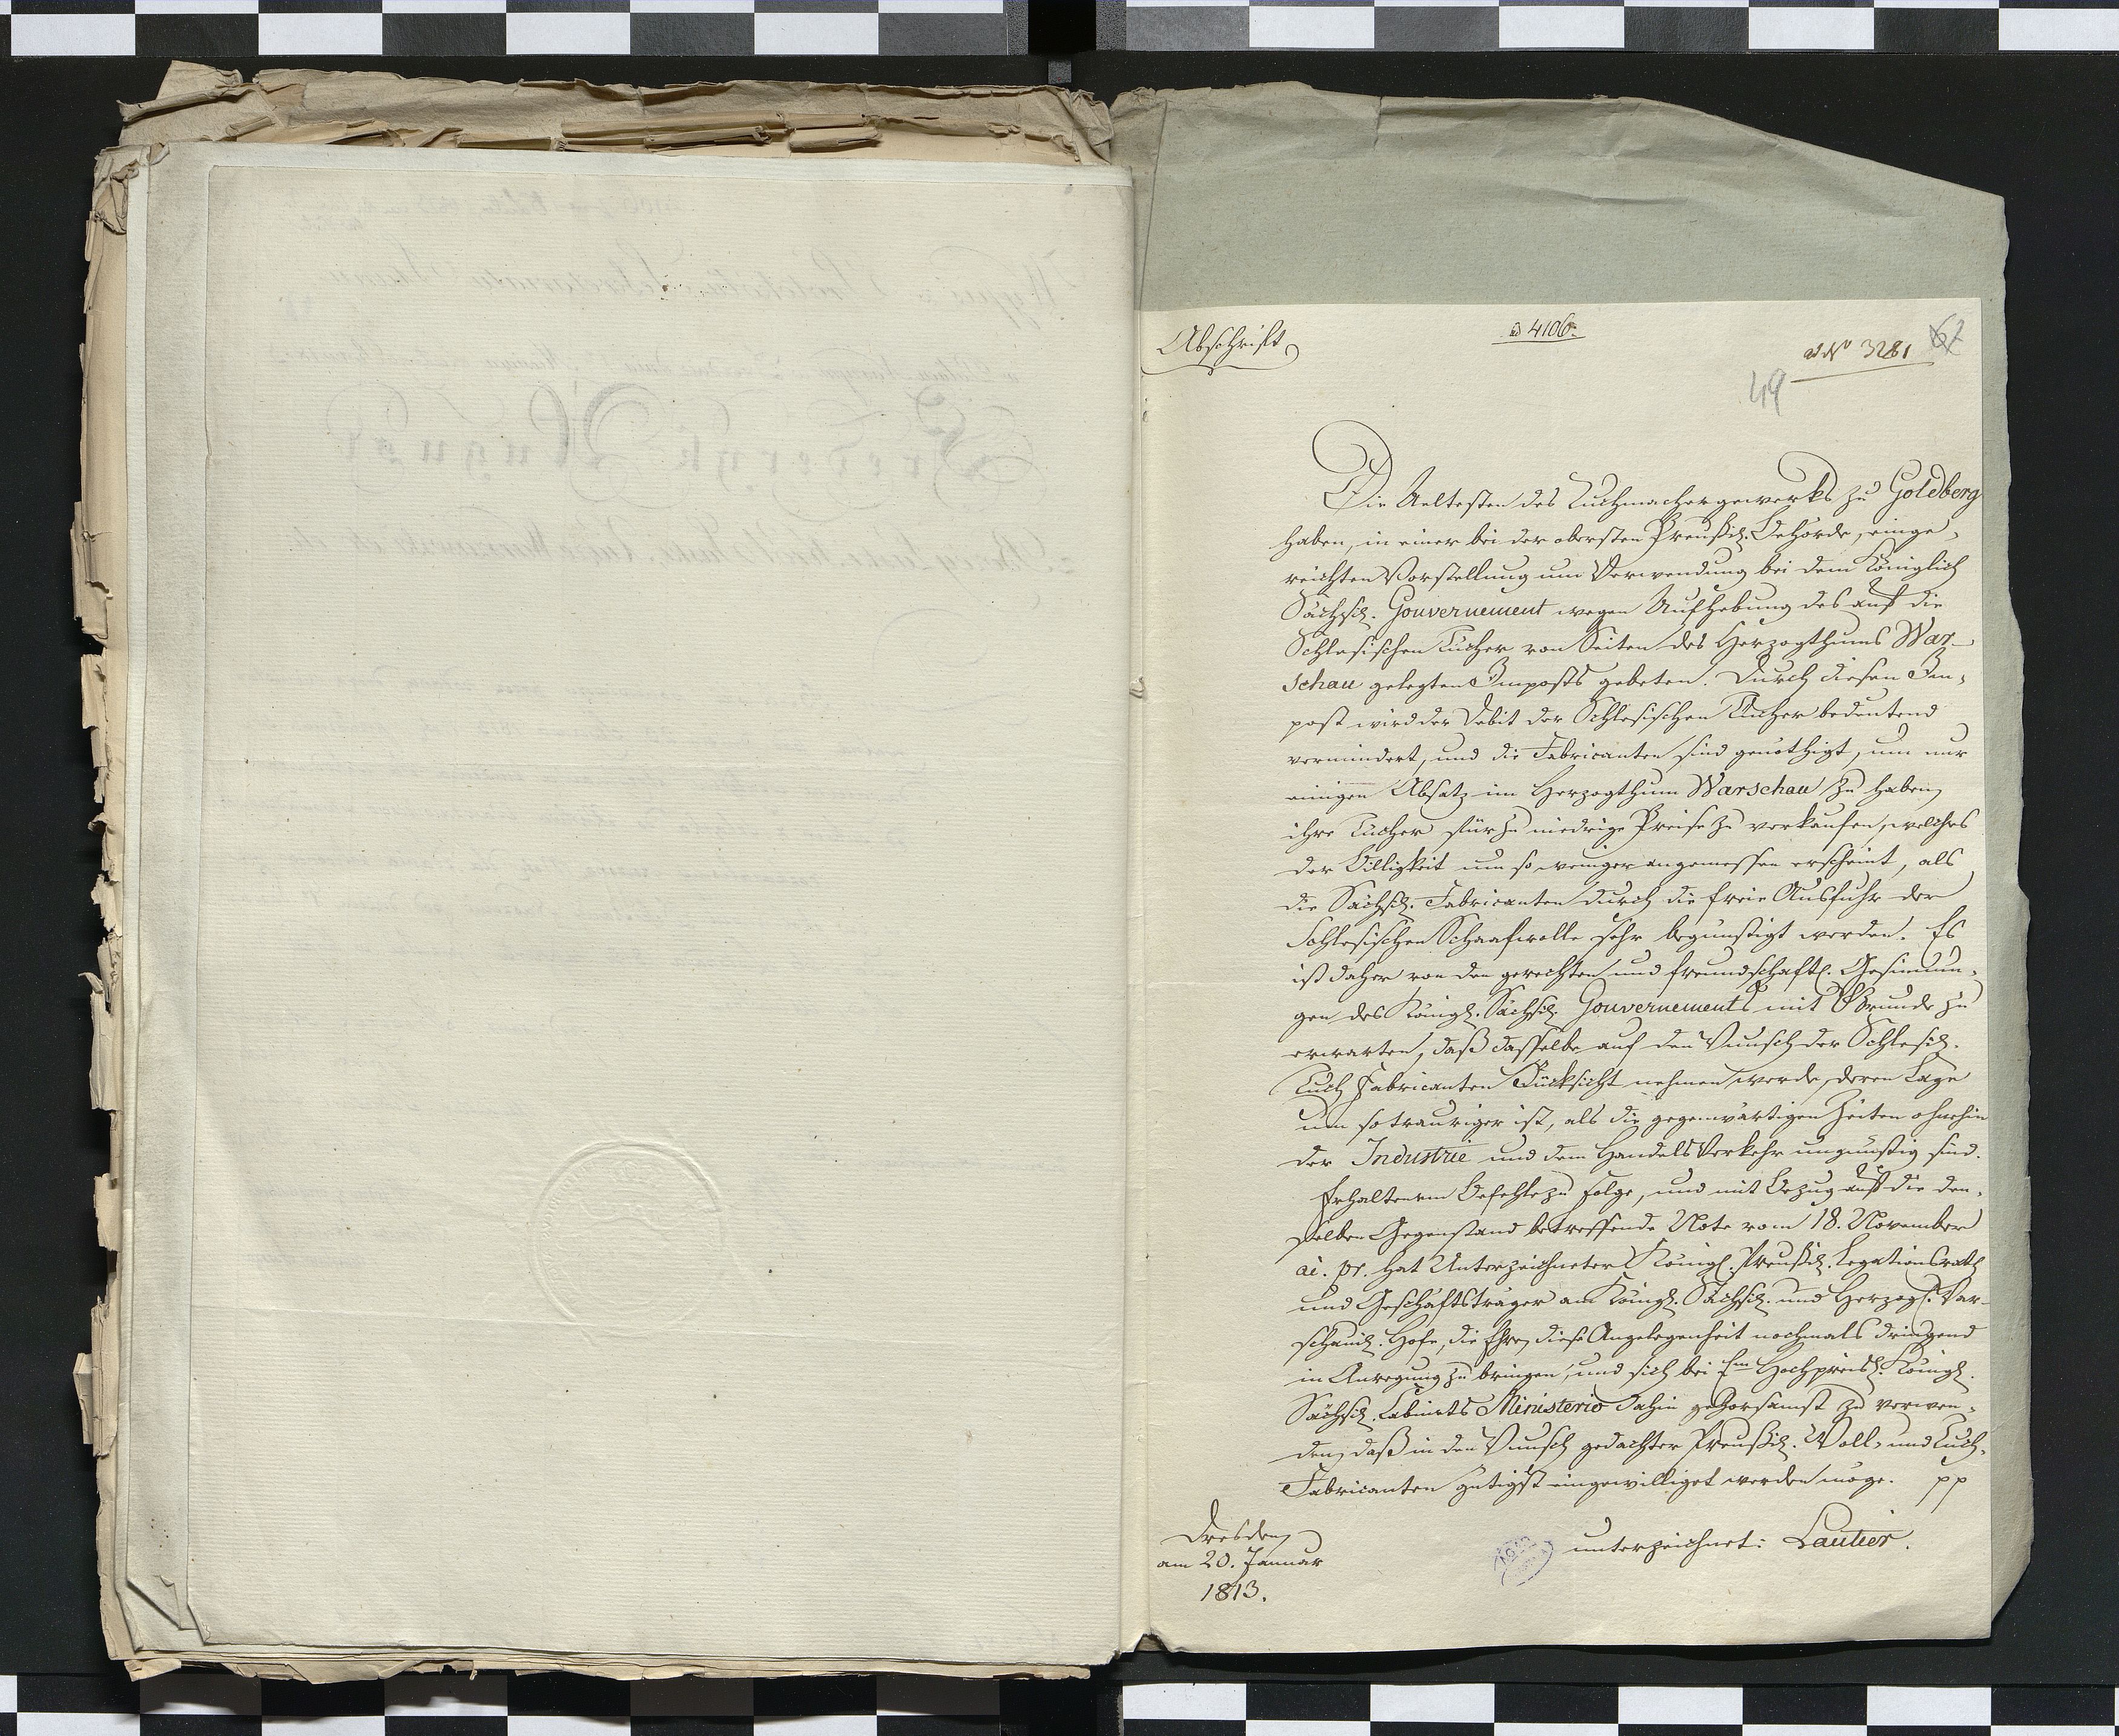 Abschrift
ad 4106.
ad No 3281
49
Die Aeltesten des Tuchmachergewerks zu Goldberg
haben, in einer bei der obersten Preußisch. Behörde, einge-
reichten Vorstellung um Verwendung bei dem Königlich
Sächsisch. Gouvernement wegen Aufhebung des auf die
Schlesischen Tücher von Seiten des Herzogthums War-
schau gelegten Imposts gebeten. Durch diesen Im-
post wird der Debit der Schlesischen Tücher bedeutend
vermindert, und die Fabricanten sind genöthigt, um nur
einigen Absatz im Herzogthum Warschau zu haben,
ihre Tücher für zu niedrige Preise zu verkaufen, welches
der Billigkeit um so weniger angemessen erscheint, als
die Sächsisch. Fabricanten durch die freie Ausfuhr der
Schlesischen Schaafwolle sehr begünstigt werden. Es
ist daher von den gerechten und freundschaftl. Gesinnun-
gen des Königl. Sächsisch. Gouvernements mit Grunde zu
erwarten, daß dasselbe auf den Wunsch der Schlesisch.
Tuch Fabricanten Rücksicht nehmen werde, deren Lage
um so trauriger ist, als die gegenwärtigen Zeiten ohnehin
der Industrie und dem HandelsVerkehr ungünstig sind.
Erhaltenem Befehle zu Folge, und mit Bezug auf die den-
selben Gegenstand betreffende Note vom 18. November
ai. pr. hat Unterzeichneter Königl. Preußisch. Legationsrath
und Geschäftsträger am Königl. Sächsisch. und Herzogl. War-
schauisch. Hofe, die Ehre, diese Angelegenheit nochmals dringend
in Anregung zu bringen, und sich bei Em Hochpreisl. Königl.
Sächsisch. Cabinets Ministerio dahin gehorsamst zu verwen-
den, daß in den Wunsch gedachter Preußisch. Woll- und Tuch-
Fabricanten gütigst eingewilliget werden möge. pp
Dresden,
am 20. Januar
1813.
unterzeichnet: Lautier.